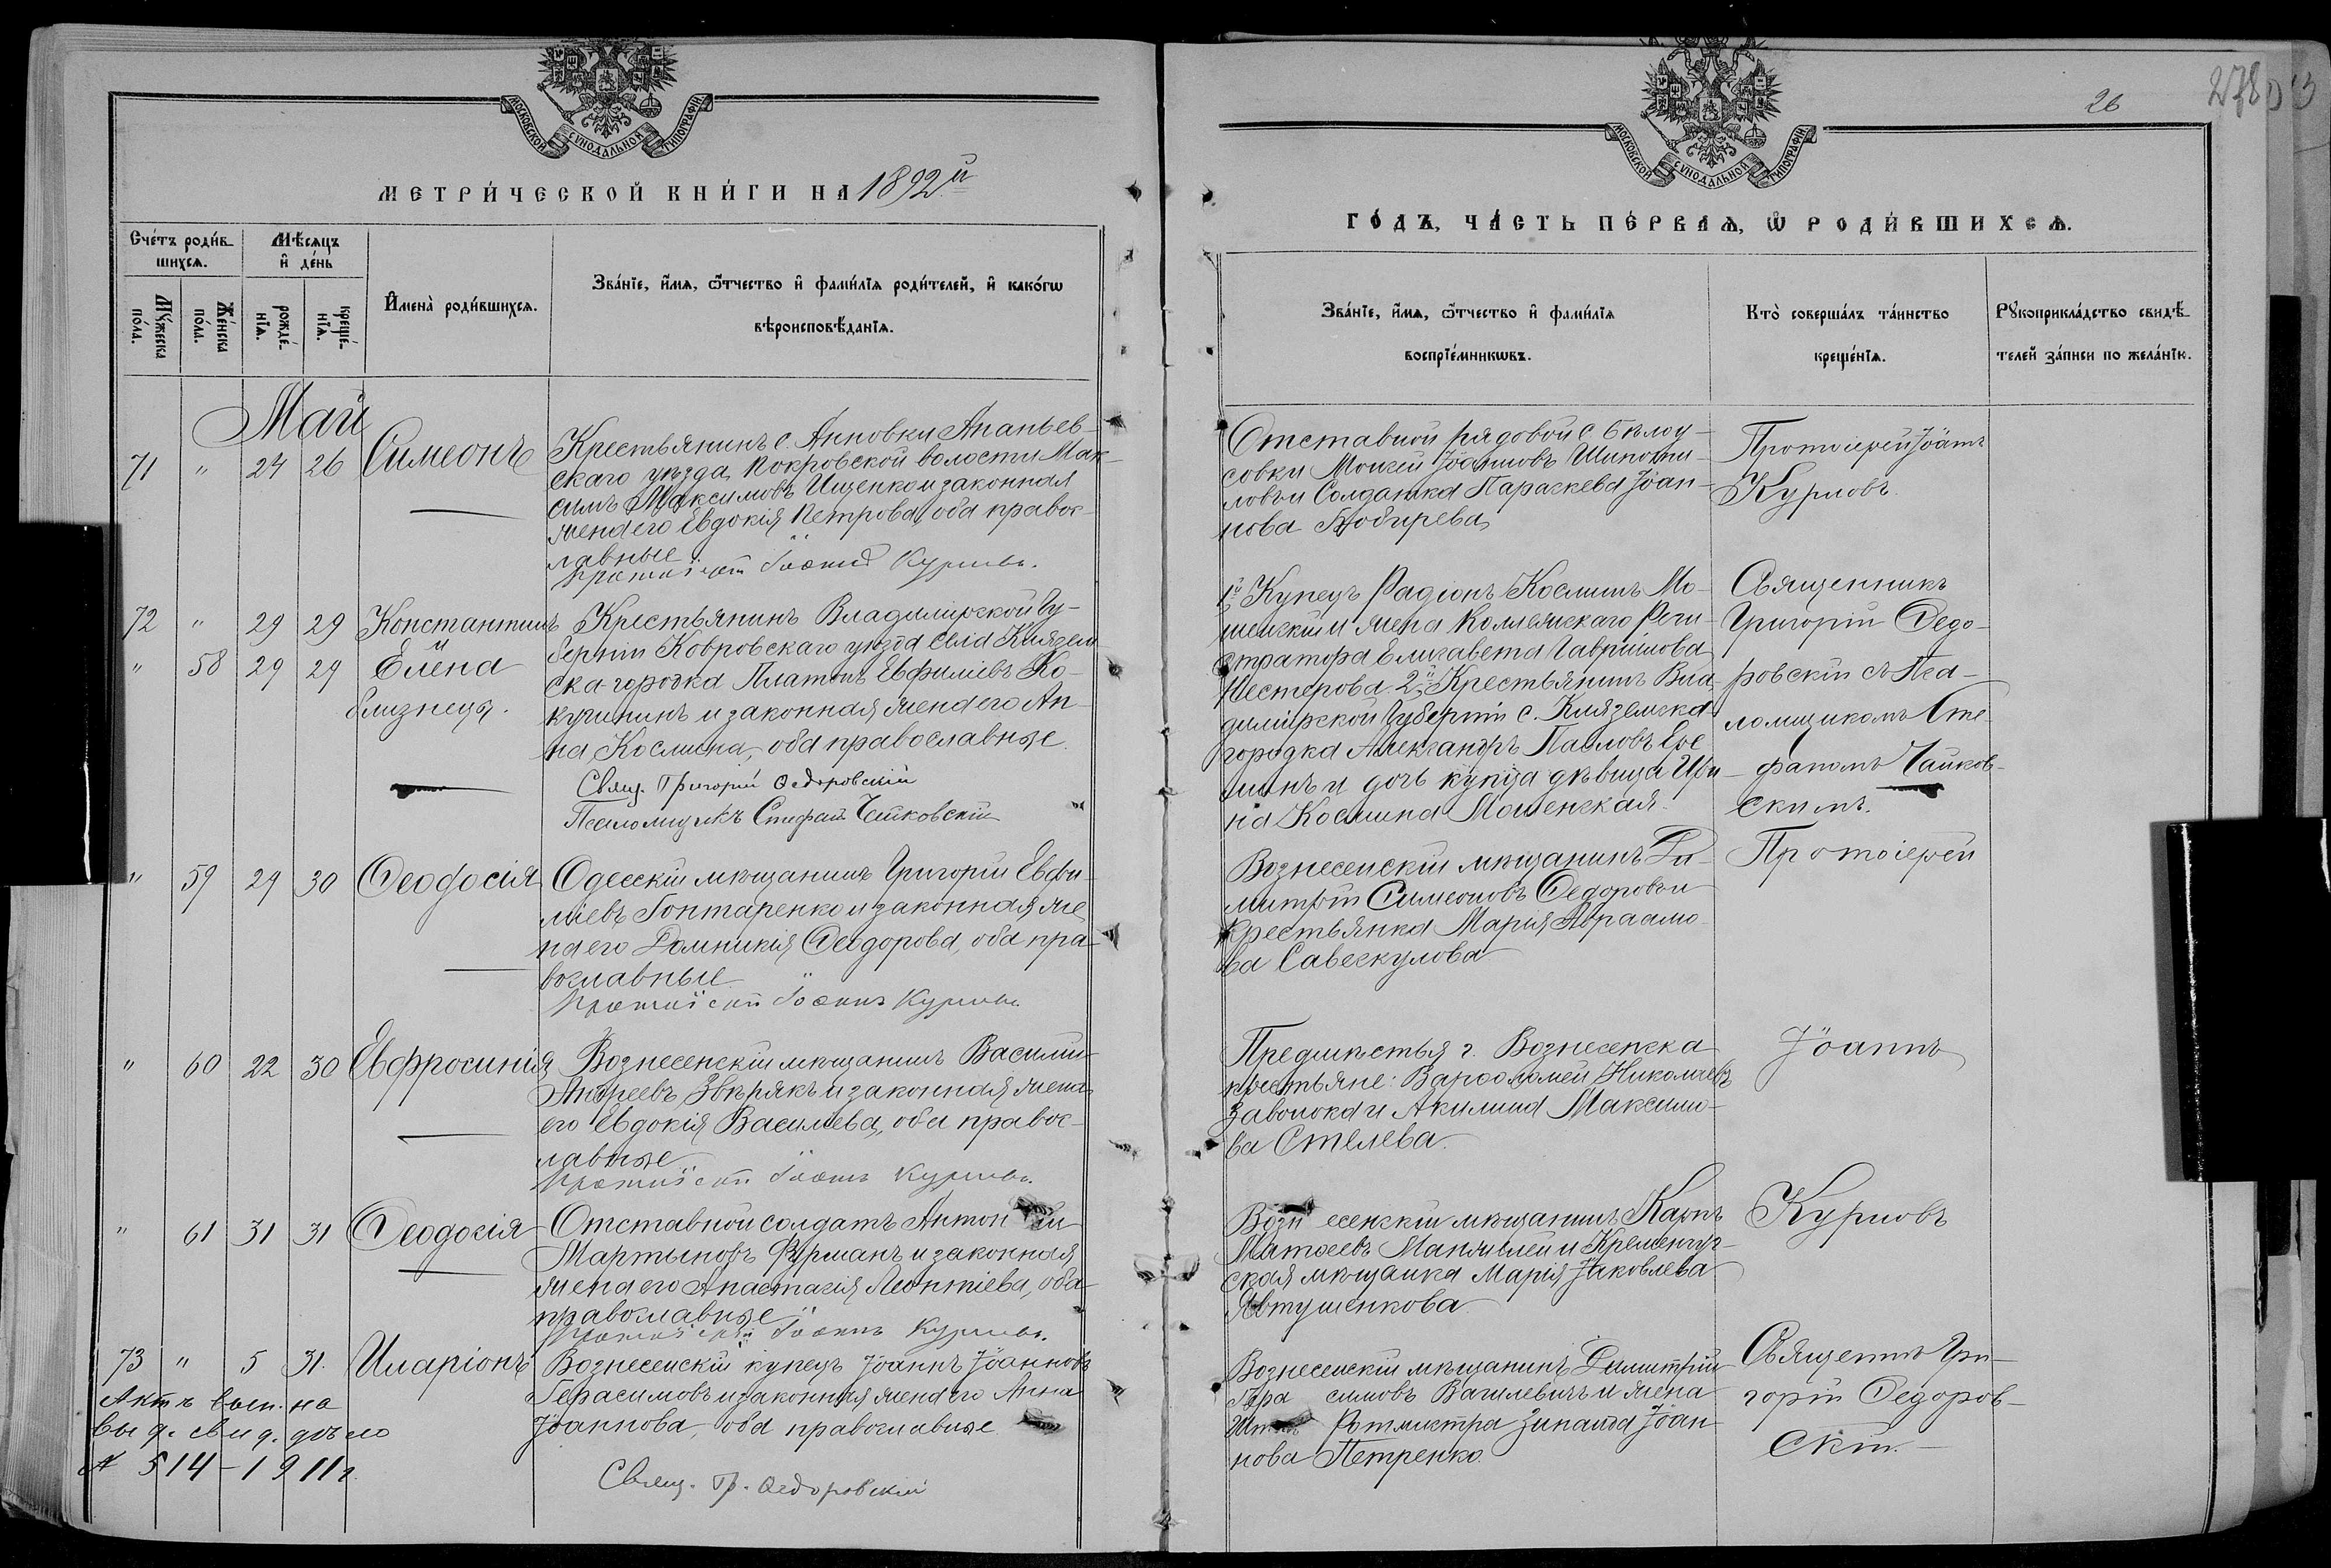 МОСКОВСКОЙ СѴНОДАЛЬНОЙ ТИПОГРАФІИ
МЕТРИ́ЧЕСКОЙ КНИ́ГИ НА 1892й
Сче́тъ роди́в-
шихсѧ.
Мѣ́сѧцъ
и҆ де́нь
Мꙋ́жеска
по́ла.
Же́нска
по́ла.
рожде́-
нїѧ.
креще́-
нїѧ.
И҆мена̀ роди́вшихсѧ.
Зва́нїе, и҆́мѧ, ѻ҆́тчество и҆ фами́лїѧ роди́телей, и҆ како́гѡ
вѣроисповѣ́данїѧ.
Май
71 " 24 26 Симеонъ
Крестьянинъ с. Анновки Ананьев-
скаго уѣзда, Покровской волости Мак-
симъ Максимовъ Ищенко и законная
жена его Евдокія Петрова, оба правос-
лавные
Протоіерей Іоаннъ Курловъ.
72 " 29 29 Константинъ
и
" 58 29 29 Елена
близнецы.
Крестьянинъ Владимірской Гу-
берніи Ковровскаго уѣзда села Княгин
ска-городка Платонъ Евфиміевъ Ко-
кучинъ и законная жена его Ан-
на Космина, оба православные.
Свящ. Григорій Ѳедоровскій
Псаломщикъ Стефанъ Чайковскій
" 59 29 30 Ѳеодосія
Одесскій мѣщанинъ Григорій Евфи-
міевъ Гонтаренко и законная же
на его Домникія Ѳеодорова, оба пра-
вославные
Протоіерей Іоаннъ Курловъ.
" 60 22 30 Евфросинія
Вознесенскій мѣщанинъ Василій
Андреевъ Звѣрякъ и законная жена
его Евдокія Васильева, оба правос-
лавные
Протоіерей Іоаннъ Курловъ.
" 61 31 31 Ѳеодосія
Отставной солдатъ Антоній
Мартыновъ Фурманъ и законная
жена его Анастасія Леонтіева, оба
православные
Протоіерей Іоаннъ Курловъ.
73 " 5 31. Иларіонъ
Вознесенскій купецъ Іоаннъ Іоанновъ
Герасимовъ и законная жена его Анна
Іоаннова, оба православные
Свящ. Гр. Ѳедоровскій
Актъ вып. на
выд. свид. дѣло
№ 514-1911г.
26
278
МОСКОВСКОЙ СѴНОДАЛЬНОЙ ТИПОГРАФІИ
ГО́ДЪ, ЧА́СТЬ ПЕ́РВАѦ, Ѡ҆ РОДИ́ВШИХСѦ.
Зва́нїе, и҆́мѧ, ѻ҆́тчество и҆ фами́лїѧ
воспрїе́мникѡвъ.
Кто̀ соверша́лъ та́инство
креще́нїѧ.
Рꙋкоприкла́дство свидѣ́-
телей за́писи по жела́нїю.
Отставной рядовой с. Бѣлоу-
совки Моисей Іоанновъ
ловъ и Солдатка Параскева Іоан-
нова Бобырева
Протоіерей Іоаннъ
Курловъ.
1й Купецъ Радіонъ Косминъ Мо-
шенскій и жена Коллежскаго Реги-
стратора Елисавета Гавриилова
Нестерова. 2й Крестьянинъ Вла
димірской Губерніи с.
городка Александръ Павловъ
и дочь купца дѣвица Ири-
на Космина Мошенская.
Священникъ
Григорій Ѳедо-
ровскій съ Пса-
ломщикомъ Сте-
фаномъ Чайков-
скимъ.
Вознесенскій мѣщанинъ Ди-
митрій Симеоновъ Ѳедоровъ и
крестьянка Марія Авраамо-
ва Савескулова
Протоіерей
Предмѣстья г. Вознесенска
крестьяне: Варѳоломей Николаевъ
Заволока и Акилина Максимо-
ва Стелева.
Іоаннъ
Вознесенскій мѣщанинъ Карпъ
Матѳеевъ и Кременчуг-
ская мѣщанка Марія Іаковлева
Явтушенкова.
Курловъ
Вознесенскій мѣщанинъ Димитрій
Гера симовъ Василевичъ и жена
Ротмистра Зинаида Іоан
нова Петренко.
Священникъ Гри-
горій Ѳедоров-
скій.